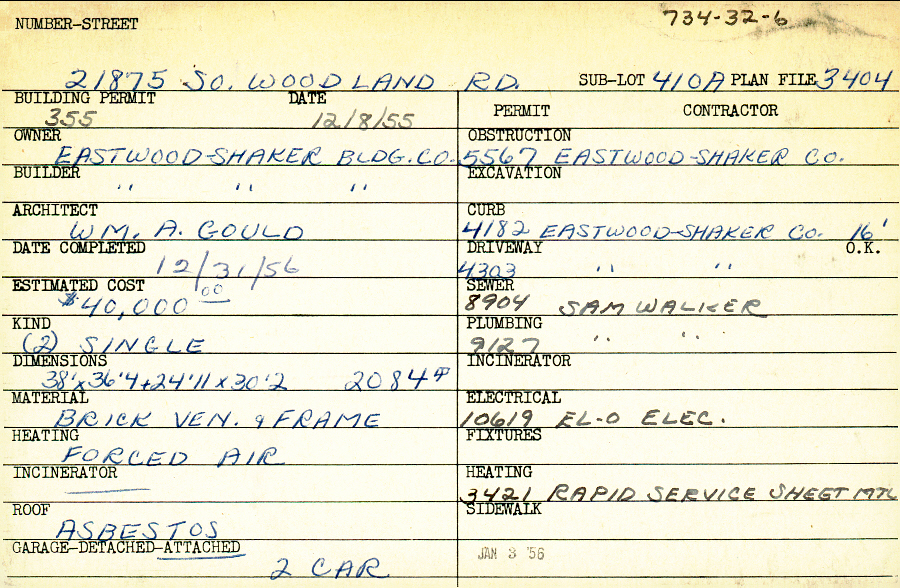 734-32-6
NUMBER-STREET
21875 SO. WOODLAND RD. SUB-LOT 410A PLAN FILE 3404
BUILDING PERMIT DATE
355 12/8/55
OWNER
EASTWOOD-SHAKER BLDG. CO.
BUILDER
" " "
ARCHITECT
WM. A. GOULD
DATE COMPLETED
12/31/56
ESTIMATED COST
$40,000.00
KIND
(2) SINGLE
DIMENSIONS
38' x 36'4 + 24'11 x 30'2 2084
MATERIAL
BRICK VEN. & FRAME
HEATING
FORCED AIR
INCINERATOR
ROOF
ASBESTOS
GARAGE-DETACHED-ATTACHED
2 CAR
PERMIT CONTRACTOR
OBSTRUCTION
5567 EASTWOOD-SHAKER CO.
EXCAVATION
CURB
4182 EASTWOOD-SHAKER CO. 16'
DRIVEWAY O.K.
4303 " "
SEWER
8904 SAM WALKER
PLUMBING
9127 " "
INCINERATOR
ELECTRICAL
10619 EL-O ELEC.
FIXTURES
HEATING
3421 RAPID SERVICE SHEET MTL
SIDEWALK
JAN 3 '56